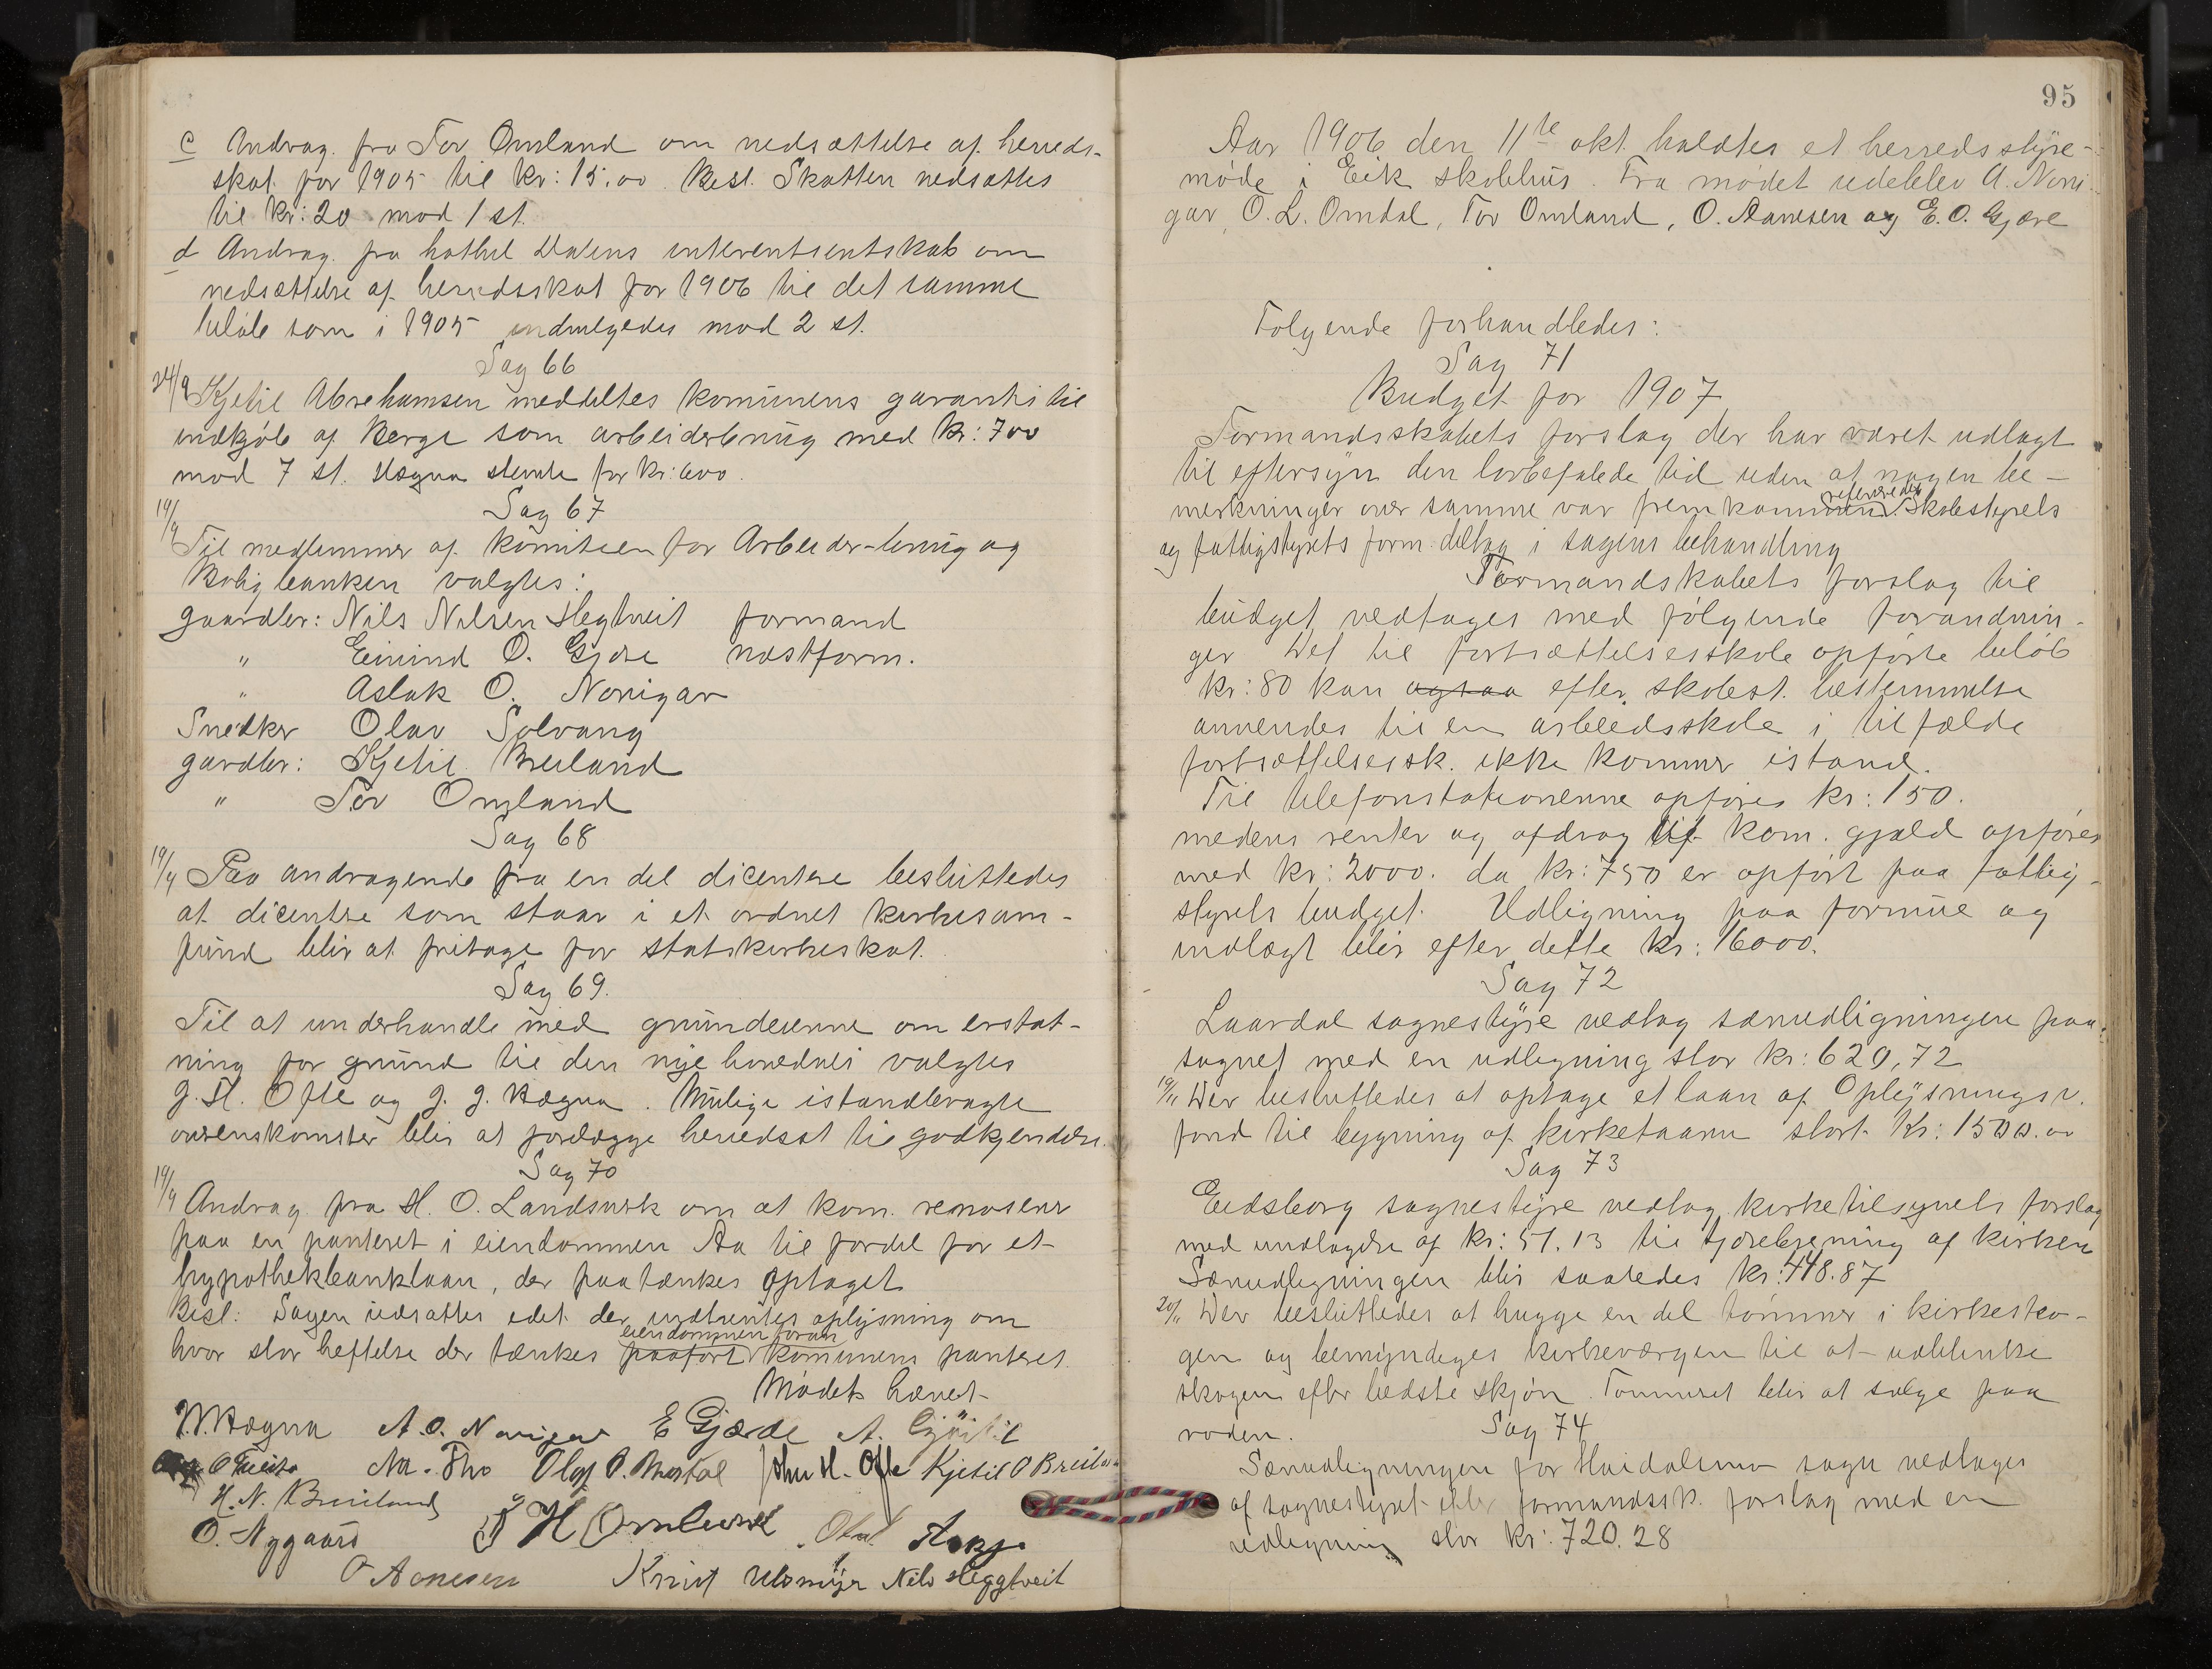 c Andrag. fra Tor Omland om nedsættelse af herreds-
skat for 1905 til kr: 15.00 Besl. Skatten nedsættes
til kr: 20 mod 1 st.
d Andrag. fra hothel Dalens interentsentskab om
nedsættelse af herredsskat for 1906 til det samme
beløb som i 1905 indvilgedes mod 2 st.
Sag 66
24/9 Kjetil Abrehamsen meddeltes kommunens garanti til
indkjøb af Berge som arbeiderbrug med kr: 700
mod 7 st. Vægna stemte for kr: 600.
Sag 67
19/9 Til medlemmer af komiteen for Arbeider-brug og
Boligbanken valgtes:
gaardbr: Nils Nilsen Hegtveit formand
" Eivind O. Gjøre næstform.
" Aslak O. Norigar
Snedker Olav Solvang
gardbr: Kjetil Breiland
" Tor Omland
Sag 68
19/9 Paa andragende fra en del dicentere besluttedes
at dicentre som staar i et ordnet kirkesam-
fund blir at fritage for statskirkeskat.
Sag 69.
Til at underhandle med grundeierne om erstat-
ning for grund til den nye hovedvei valgtes
J. H. Ofte og J. J. Vægna. Mulige istandbragte
overenskomster blir at forelægge herredsst til godkjendelse.
Sag 70
19/9 Andrag fra H. O. Landsverk om at kom. renoserer
paa en panteret i eiendommen Aa til fordel for et
hypothekbanklaan, der paatænkes optaget
Besl: Sagen udsættes idet der indhentes oplysning om
eiendommen foran
hvor stor heftelse der tænkes paaført kommunens panteret.
Mødet hævet
J. Vægna A. O. Norigar E Gjærde A.
O Tveito Olaf O. Mostøl John H. Ofte Kjetil O Breiland
H. N. Breiland
O. Nygaard H Omlund Olav
O Aanesen Knut Nils Heggtveit
95
Aar 1906 den 11te okt. holdtes et herredsstyre-
møde i Eik skolehus. Fra mødet udeblev A. Nori-
gar, O. L. Omdal, Tor Omland, O. Aanesen og E. O. Gjøre
Følgende forhandledes:
Sag 71
Budget for 1907
Formandsskabets forslag der har været udlagt
til eftersyn den lovbefalede tid uden at nogen be-
refereredes
merkninger over samme var fremkommen. Skolestyrets
og fattigstyrets form. deltog i sagens behandling
Formandskabets forslag til
budget vedtages med følgende forandrin-
ger Det til fortsættelsesskole opførte beløb
kr: 80 kan ogsaa efter skolest. bestemmelse
anvendes til en arbeidsskole i tilfælde
fortsættelsessk. ikke kommer istand.
Til telefonstationerne opføres kr: 150.
medens renter og afdrag til kom. gjæld opføres
med kr: 2000. da kr: 750 er opført paa fattig-
styrets budget. Udligning paa formue og
indtægt blir efter dette kr: 16000.
Sag 72
Laardal sognestyre vedtog særudligningen paa
sognet med en udligning stor kr: 620,72
19/11 Der besluttedes at optage et laan af Oplysningsv.
fond til bygning af kirketaarn stort kr: 1500.00
Sag 73
Eidsborg sognestyre vedtog kirketilsynets forslag
med undtagelse af kr: 51.13 til tjærebreining af kirken
Særudligningen blir saaledes kr: 448.87
20/11 Der besluttedes at hugge en del tømmer i kirkesko-
gen og bemyndiges kirkeværgen til at udblinke
skogen efter bedste skjøn. Tømmeret blir at sælge paa
roden.
Sag 74
Særudligningen for Høidalsmo sogn vedtages
af sognestyret efter formandssk. forslag med en
udligning stor kr: 720.28